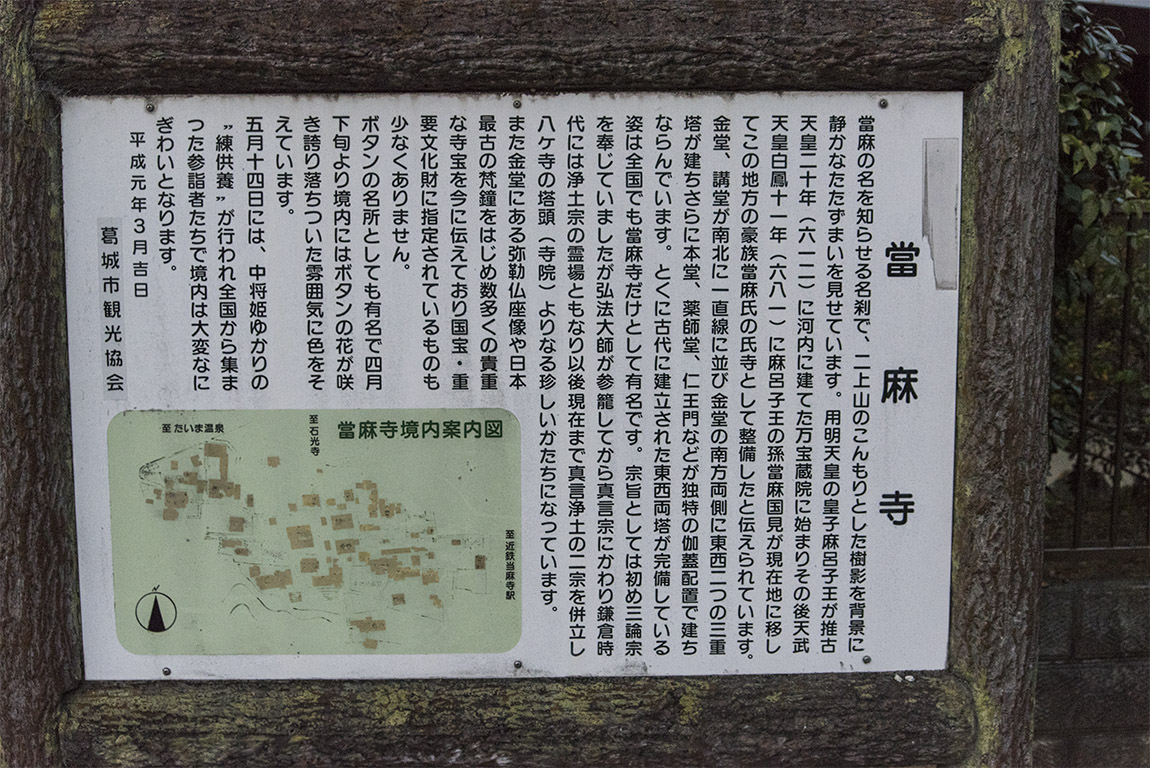 當麻寺
當麻の名を知らせる名刹で、二上山のこんもりとした樹影を背景に
静かなたたずまいを見せています。用明天皇の皇子麻呂子王が推古
天皇二十年（六一二）に河内に建てた万宝蔵院に始まりその後天武
天皇白鳳十一年（六八一）に麻呂子王の孫當麻国見が現在地に移し
てこの地方の豪族當麻氏の氏寺として整備したと伝えられています。
金堂、講堂が南北に一直線に並び金堂の南方両側に東西二つの三重
塔が建ちさらに本堂、薬師堂、仁王門などが独特の伽蓋配置で建ち
ならんでいます。とくに古代に建立された東西両塔が完備している
姿は全国でも當麻寺だけとして有名です。宗旨としては初め三論宗
を奉じていましたが弘法大師が参籠してから真言宗にかわり鎌倉時
代には浄土宗の霊場ともなり以後現在まで真言浄土の二宗を併立し
八ケ寺の塔頭（寺院）よりなる珍しいかたちになっています。
また金堂にある弥勒仏座像や日本
最古の梵鐘をはじめ数多くの貴重
な寺宝を今に伝えており国宝・重
要文化財に指定されているものも
少なくありません。
ボタンの名所としても有名で四月
下旬より境内にはボタンの花が咲
き誇り落ちついた雰囲気に色をそ
えています。
五月十四日には、中将姫ゆかりの
〝練供養〟が行われ全国から集ま
つた参詣者たちで境内は大変なに
ぎわいとなります。
平成元年３月吉日
葛城市観光協会
當麻寺境内案内図
至石光寺
至たいま温泉
至近鉄当麻寺駅
N